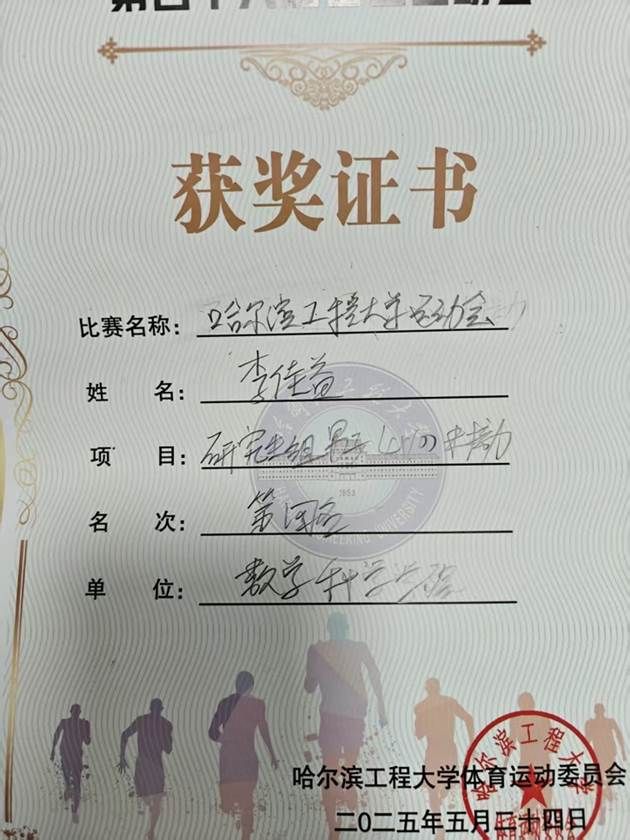 获奖证书
比赛名称：哈尔滨工程大学运动会
姓名：李佳益
项目：研究生组男子
名次：第四名
单位：数学科学学院
1953
ENGINEERING UNIVERSITY
哈尔滨工程大学
哈尔滨工程大学体育运动委员会
二〇二五年五月二十四日